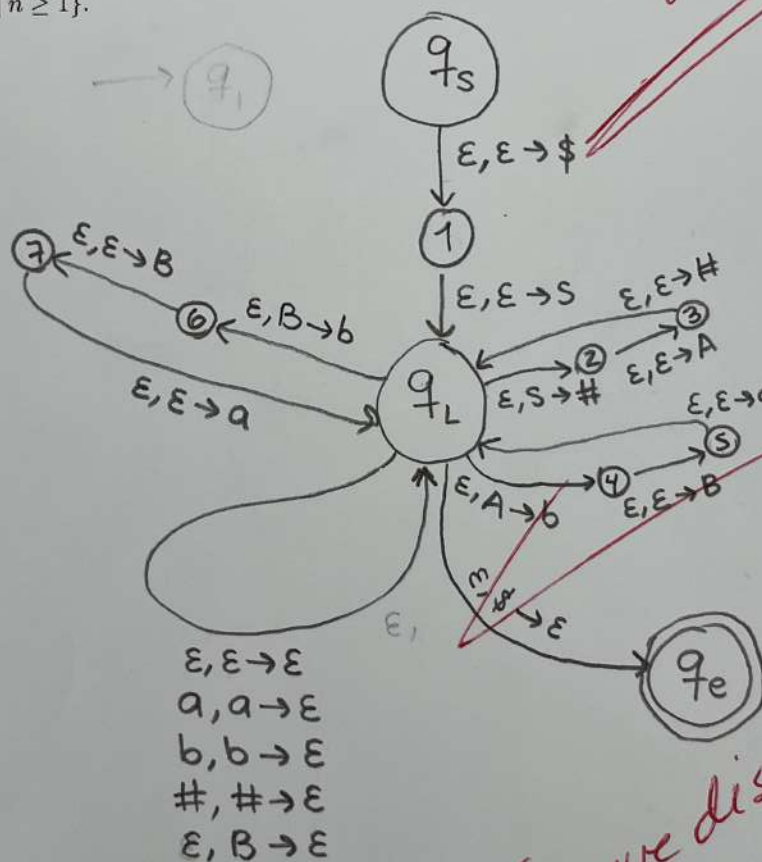 n ≥ 1}.
q₁
qS
ε, ε → $
1
ε, ε → S
7
ε, ε → B
6
ε, B → b
ε, ε → a
qL
ε, ε → #
3
2
ε, S → #
ε, ε → A
ε, ε →
5
4
ε, A → b
ε, ε → B
ε,
ε, $ → ε
qe
ε, ε → ε
a, a → ε
b, b → ε
#, # → ε
ε, B → ε